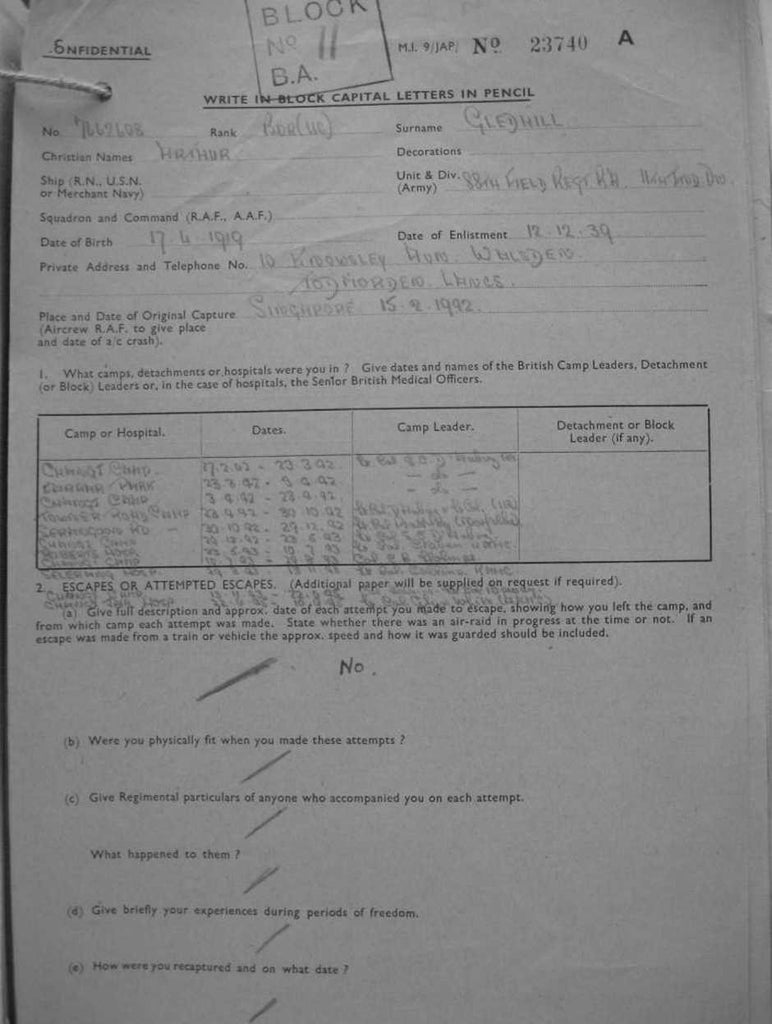 BLOCK
No 11
B.A.
CONFIDENTIAL
M.I. 9/JAP/ No 23740 A
WRITE IN BLOCK CAPITAL LETTERS IN PENCIL
No. Rank BDR (UC) Surname GLEDHILL
Christian Names ARTHUR Decorations
Ship (R.N., U.S.N. or Merchant Navy)
Unit & Div. (Army) 88TH FIELD REGT RA. 11TH IND DIV.
Squadron and Command (R.A.F., A.A.F.)
Date of Birth 17.4.1919 Date of Enlistment 12.12.39
Private Address and Telephone No. 10 KNOWSLEY WALSDEN
TODMORDEN LANCS.
Place and Date of Original Capture SINGAPORE 15.2.1942.
(Aircrew R.A.F. to give place
and date of a/c crash).
1. What camps, detachments or hospitals were you in ? Give dates and names of the British Camp Leaders, Detachment
(or Block) Leaders or, in the case of hospitals, the Senior British Medical Officers.
Camp or Hospital. Dates. Camp Leader. Detachment or Block Leader (if any).
CHANGI CAMP 17.2.42 - 23.3.42
PARK 23.3.42 - - do -
CHANGI CAMP - do -
ROAD CAMP - 30.10.42
RD 30.10.42 - 29.12.42
CAMP
CAMP
HOSP.
2. ESCAPES OR ATTEMPTED ESCAPES. (Additional paper will be supplied on request if required).
(a) Give full description and approx. date of each attempt you made to escape, showing how you left the camp, and
from which camp each attempt was made. State whether there was an air-raid in progress at the time or not. If an
escape was made from a train or vehicle the approx. speed and how it was guarded should be included.
No.
(b) Were you physically fit when you made these attempts ?
(c) Give Regimental particulars of anyone who accompanied you on each attempt.
What happened to them ?
(d) Give briefly your experiences during periods of freedom.
(e) How were you recaptured and on what date ?